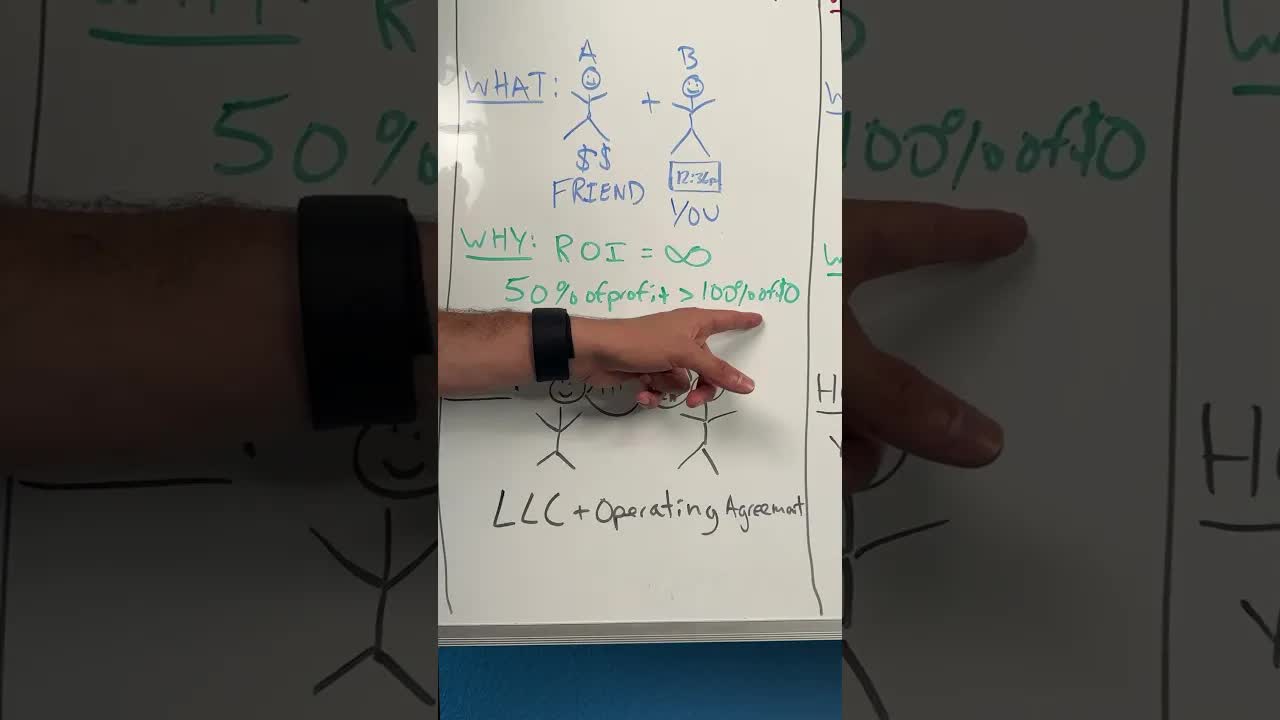 A B
WHAT: +
$$ 12:36p
FRIEND YOU
WHY: ROI = ∞
50% of profit > 100% of $0
LLC + Operating Agreement